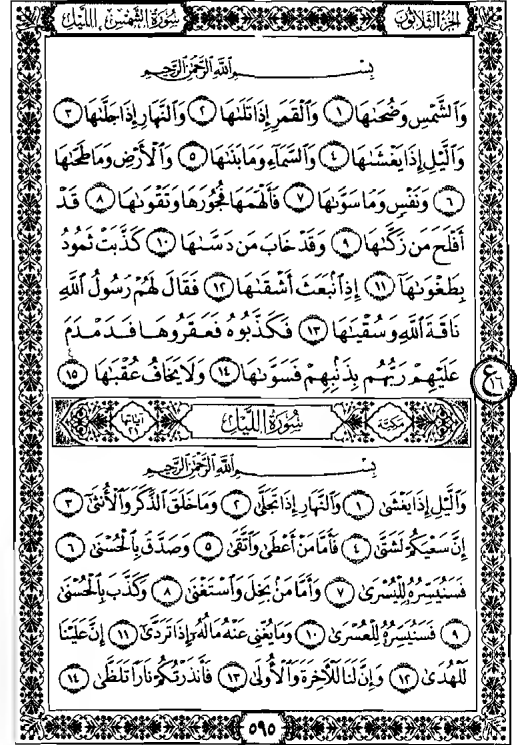 سُورَةُ الشَّمْسِ ، اللَّيْلِ الجُزْءُ الثَّلَاثُونَ
بِسْمِ ٱللَّهِ ٱلرَّحْمَٰنِ ٱلرَّحِيمِ
وَٱلشَّمْسِ وَضُحَىٰهَا ١ وَٱلْقَمَرِ إِذَا تَلَىٰهَا ٢ وَٱلنَّهَارِ إِذَا جَلَّىٰهَا ٣
وَٱلَّيْلِ إِذَا يَغْشَىٰهَا ٤ وَٱلسَّمَآءِ وَمَا بَنَىٰهَا ٥ وَٱلْأَرْضِ وَمَا طَحَىٰهَا
٦ وَنَفْسٍ وَمَا سَوَّىٰهَا ٧ فَأَلْهَمَهَا فُجُورَهَا وَتَقْوَىٰهَا ٨ قَدْ
أَفْلَحَ مَن زَكَّىٰهَا ٩ وَقَدْ خَابَ مَن دَسَّىٰهَا ١٠ كَذَّبَتْ ثَمُودُ
بِطَغْوَىٰهَآ ١١ إِذِ ٱنۢبَعَثَ أَشْقَىٰهَا ١٢ فَقَالَ لَهُمْ رَسُولُ ٱللَّهِ
نَاقَةَ ٱللَّهِ وَسُقْيَٰهَا ١٣ فَكَذَّبُوهُ فَعَقَرُوهَا فَدَمْدَمَ
عَلَيْهِمْ رَبُّهُم بِذَنۢبِهِمْ فَسَوَّىٰهَا ١٤ وَلَا يَخَافُ عُقْبَٰهَا ١٥
ع ١٦
مكيّة سُورَةُ اللَّيْلِ آياتها ٢١
بِسْمِ ٱللَّهِ ٱلرَّحْمَٰنِ ٱلرَّحِيمِ
وَٱلَّيْلِ إِذَا يَغْشَىٰ ١ وَٱلنَّهَارِ إِذَا تَجَلَّىٰ ٢ وَمَا خَلَقَ ٱلذَّكَرَ وَٱلْأُنثَىٰٓ ٣
إِنَّ سَعْيَكُمْ لَشَتَّىٰ ٤ فَأَمَّا مَنْ أَعْطَىٰ وَٱتَّقَىٰ ٥ وَصَدَّقَ بِٱلْحُسْنَىٰ ٦
فَسَنُيَسِّرُهُۥ لِلْيُسْرَىٰ ٧ وَأَمَّا مَنۢ بَخِلَ وَٱسْتَغْنَىٰ ٨ وَكَذَّبَ بِٱلْحُسْنَىٰ
٩ فَسَنُيَسِّرُهُۥ لِلْعُسْرَىٰ ١٠ وَمَا يُغْنِى عَنْهُ مَالُهُۥٓ إِذَا تَرَدَّىٰٓ ١١ إِنَّ عَلَيْنَا
لَلْهُدَىٰ ١٢ وَإِنَّ لَنَا لَلْءَاخِرَةَ وَٱلْأُولَىٰ ١٣ فَأَنذَرْتُكُمْ نَارًا تَلَظَّىٰ ١٤
٥٩٥